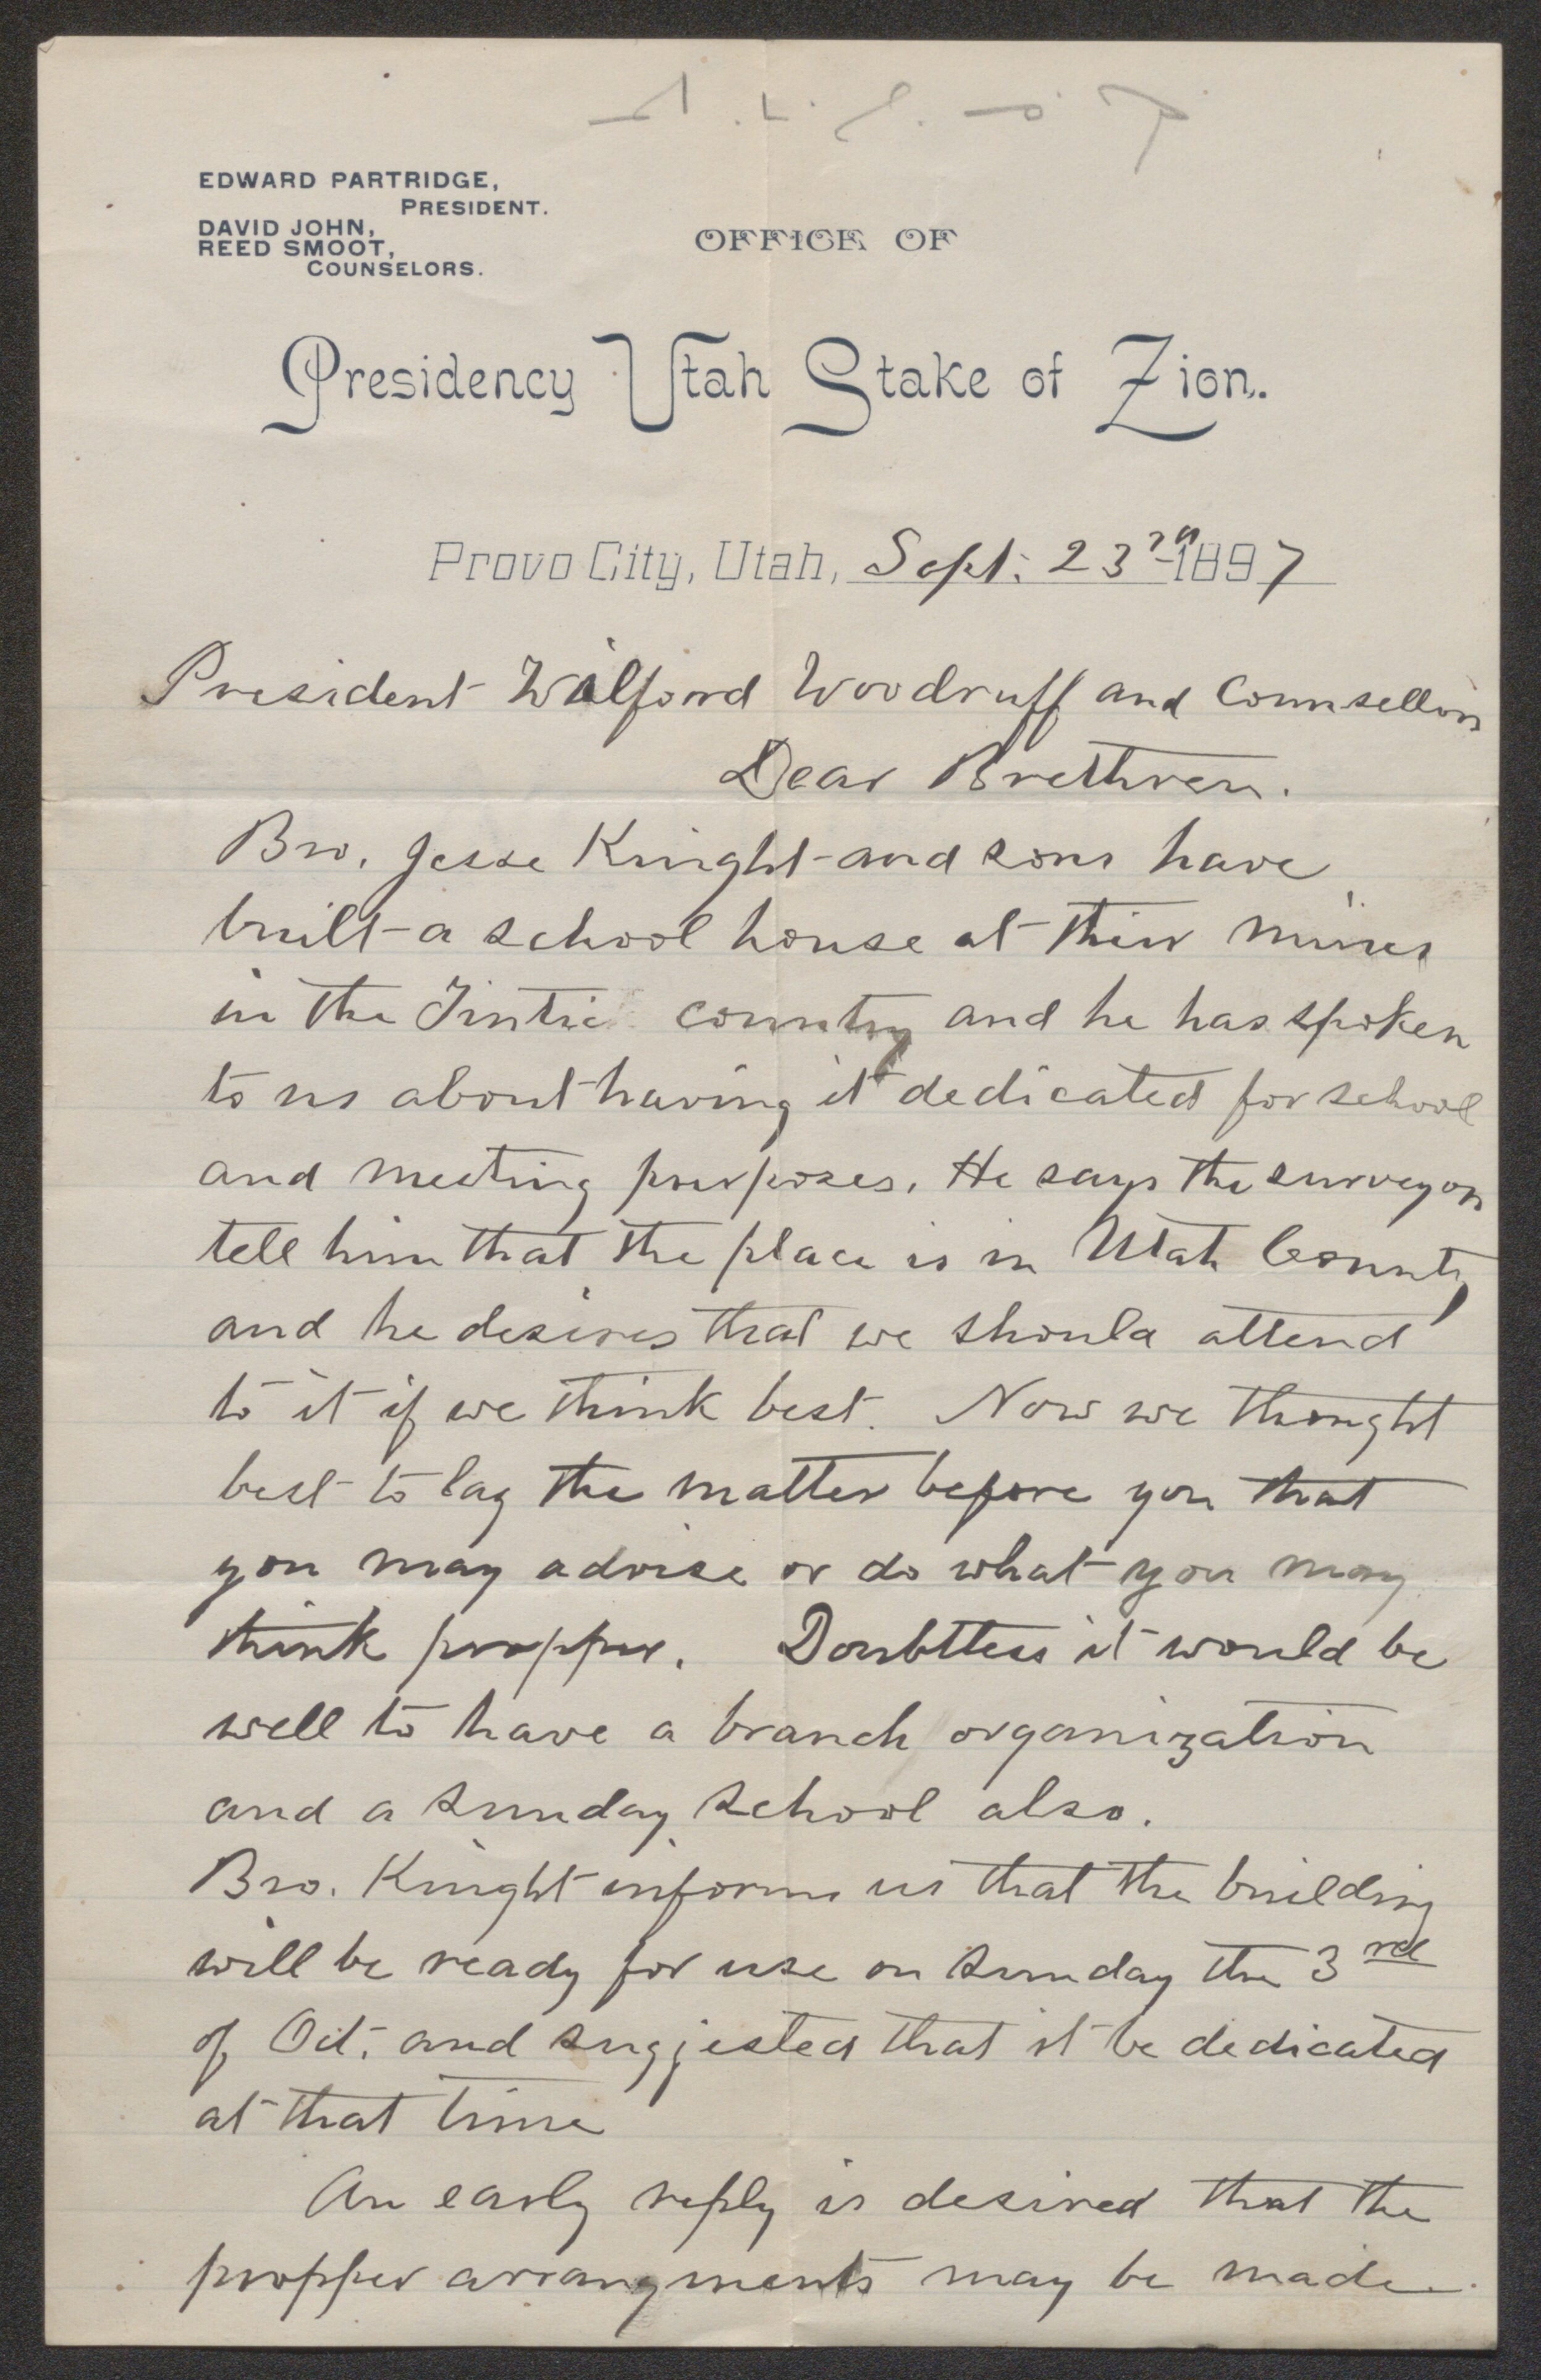 EDWARD PARTRIDGE,
PRESIDENT.
DAVID JOHN,
REED SMOOT,
COUNSELORS.
OFFICE OF
Presidency Utah Stake of Zion.
Provo City, Utah, Sept. 23rd 1897
President Wilford Woodruff and Counsellors
Dear Brethren.
Bro. Jesse Knight and sons have
built a school house at thier mines
in the Tintic country and he has spoken
to us about having it dedicated for school
and meeting purposes. He says the surveyors
tell him that the place is in Utah County
and he desires that we should attend
to it if we think best. Now we thought
best to lay the matter before you that
you may advise or do what you may
think propper. Doubttess it would be
well to have a branch organization
and a Sunday School also.
Bro. Knight informs us that the building
will be ready for use on Sunday the 3rd
of Oct. and sugjested that it be dedicated
at that time
An early reply is desired that the
propper arrangments may be made.